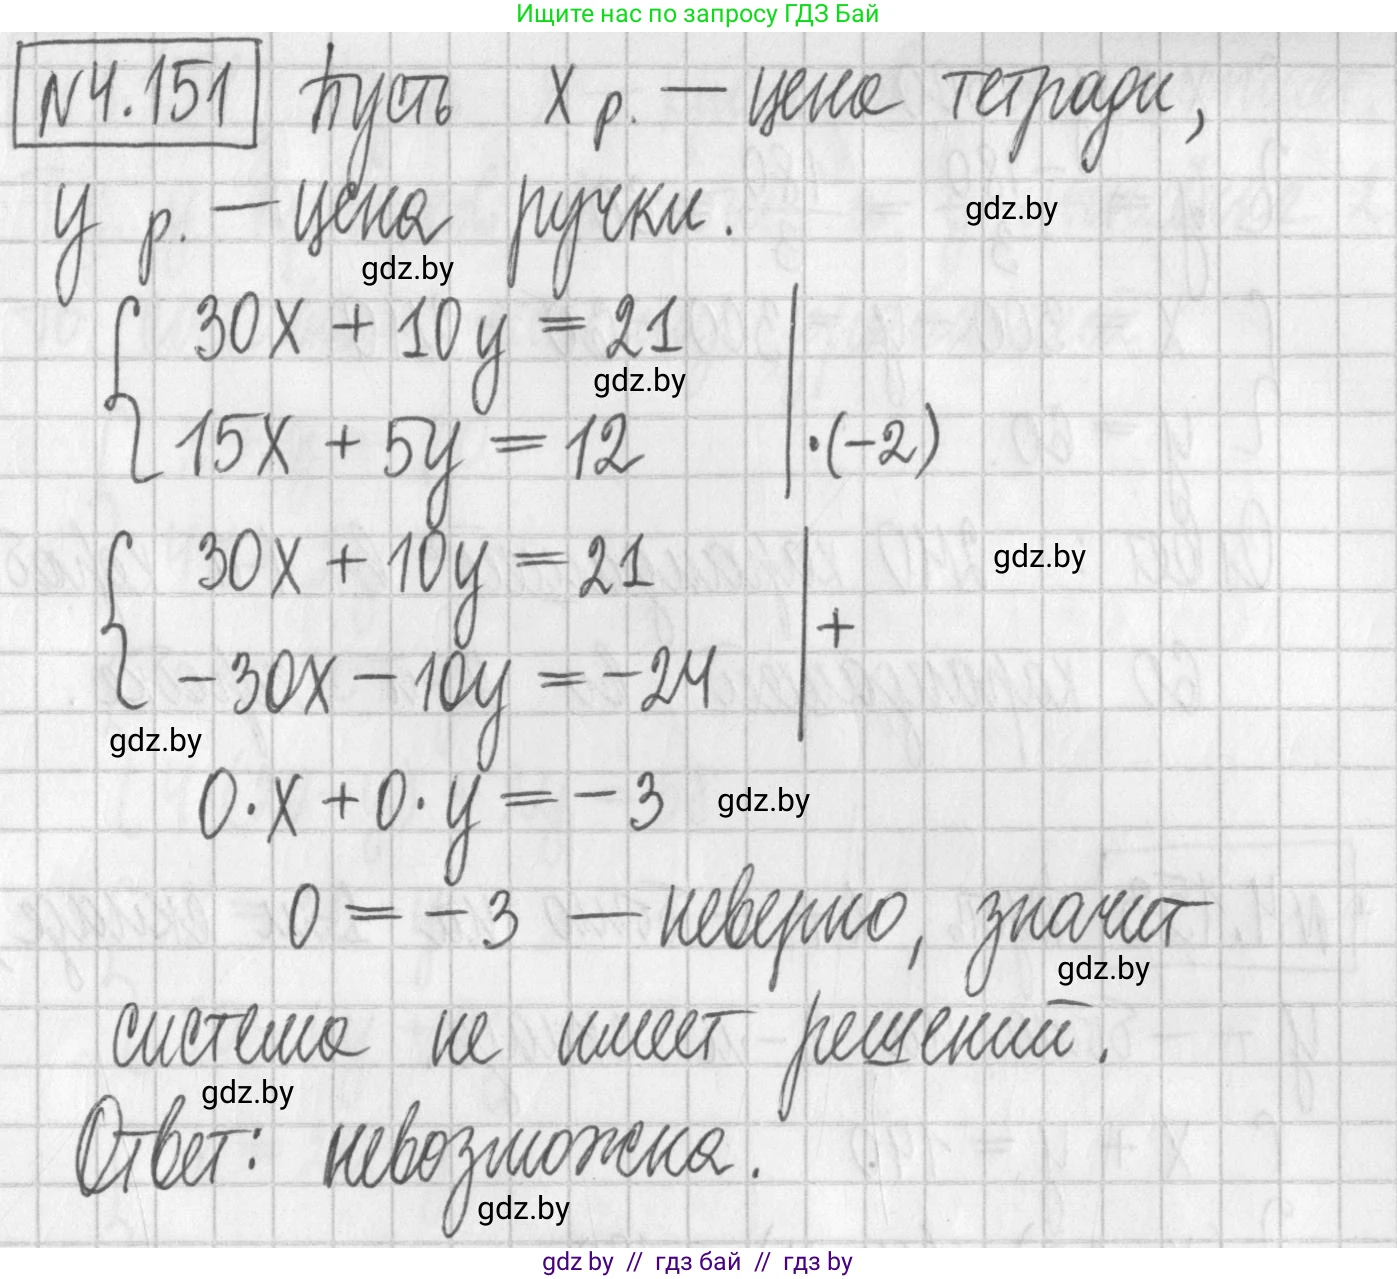 Ищите нас по запросу ГДЗ Бай
№4.151 Пусть x р. — цена тетради,
y р. — цена ручки.
gdz.by
gdz.by
30x + 10y = 21
gdz.by
15x + 5y = 12 | ·(-2)
30x + 10y = 21
gdz.by
+
-30x - 10y = -24
gdz.by
0·x + 0·y = -3
gdz.by
0 = -3 — неверно, значит
gdz.by
система не имеет решений.
gdz.by
Ответ: невозможна.
gdz.by
gdz by // гдз бай // гдз by